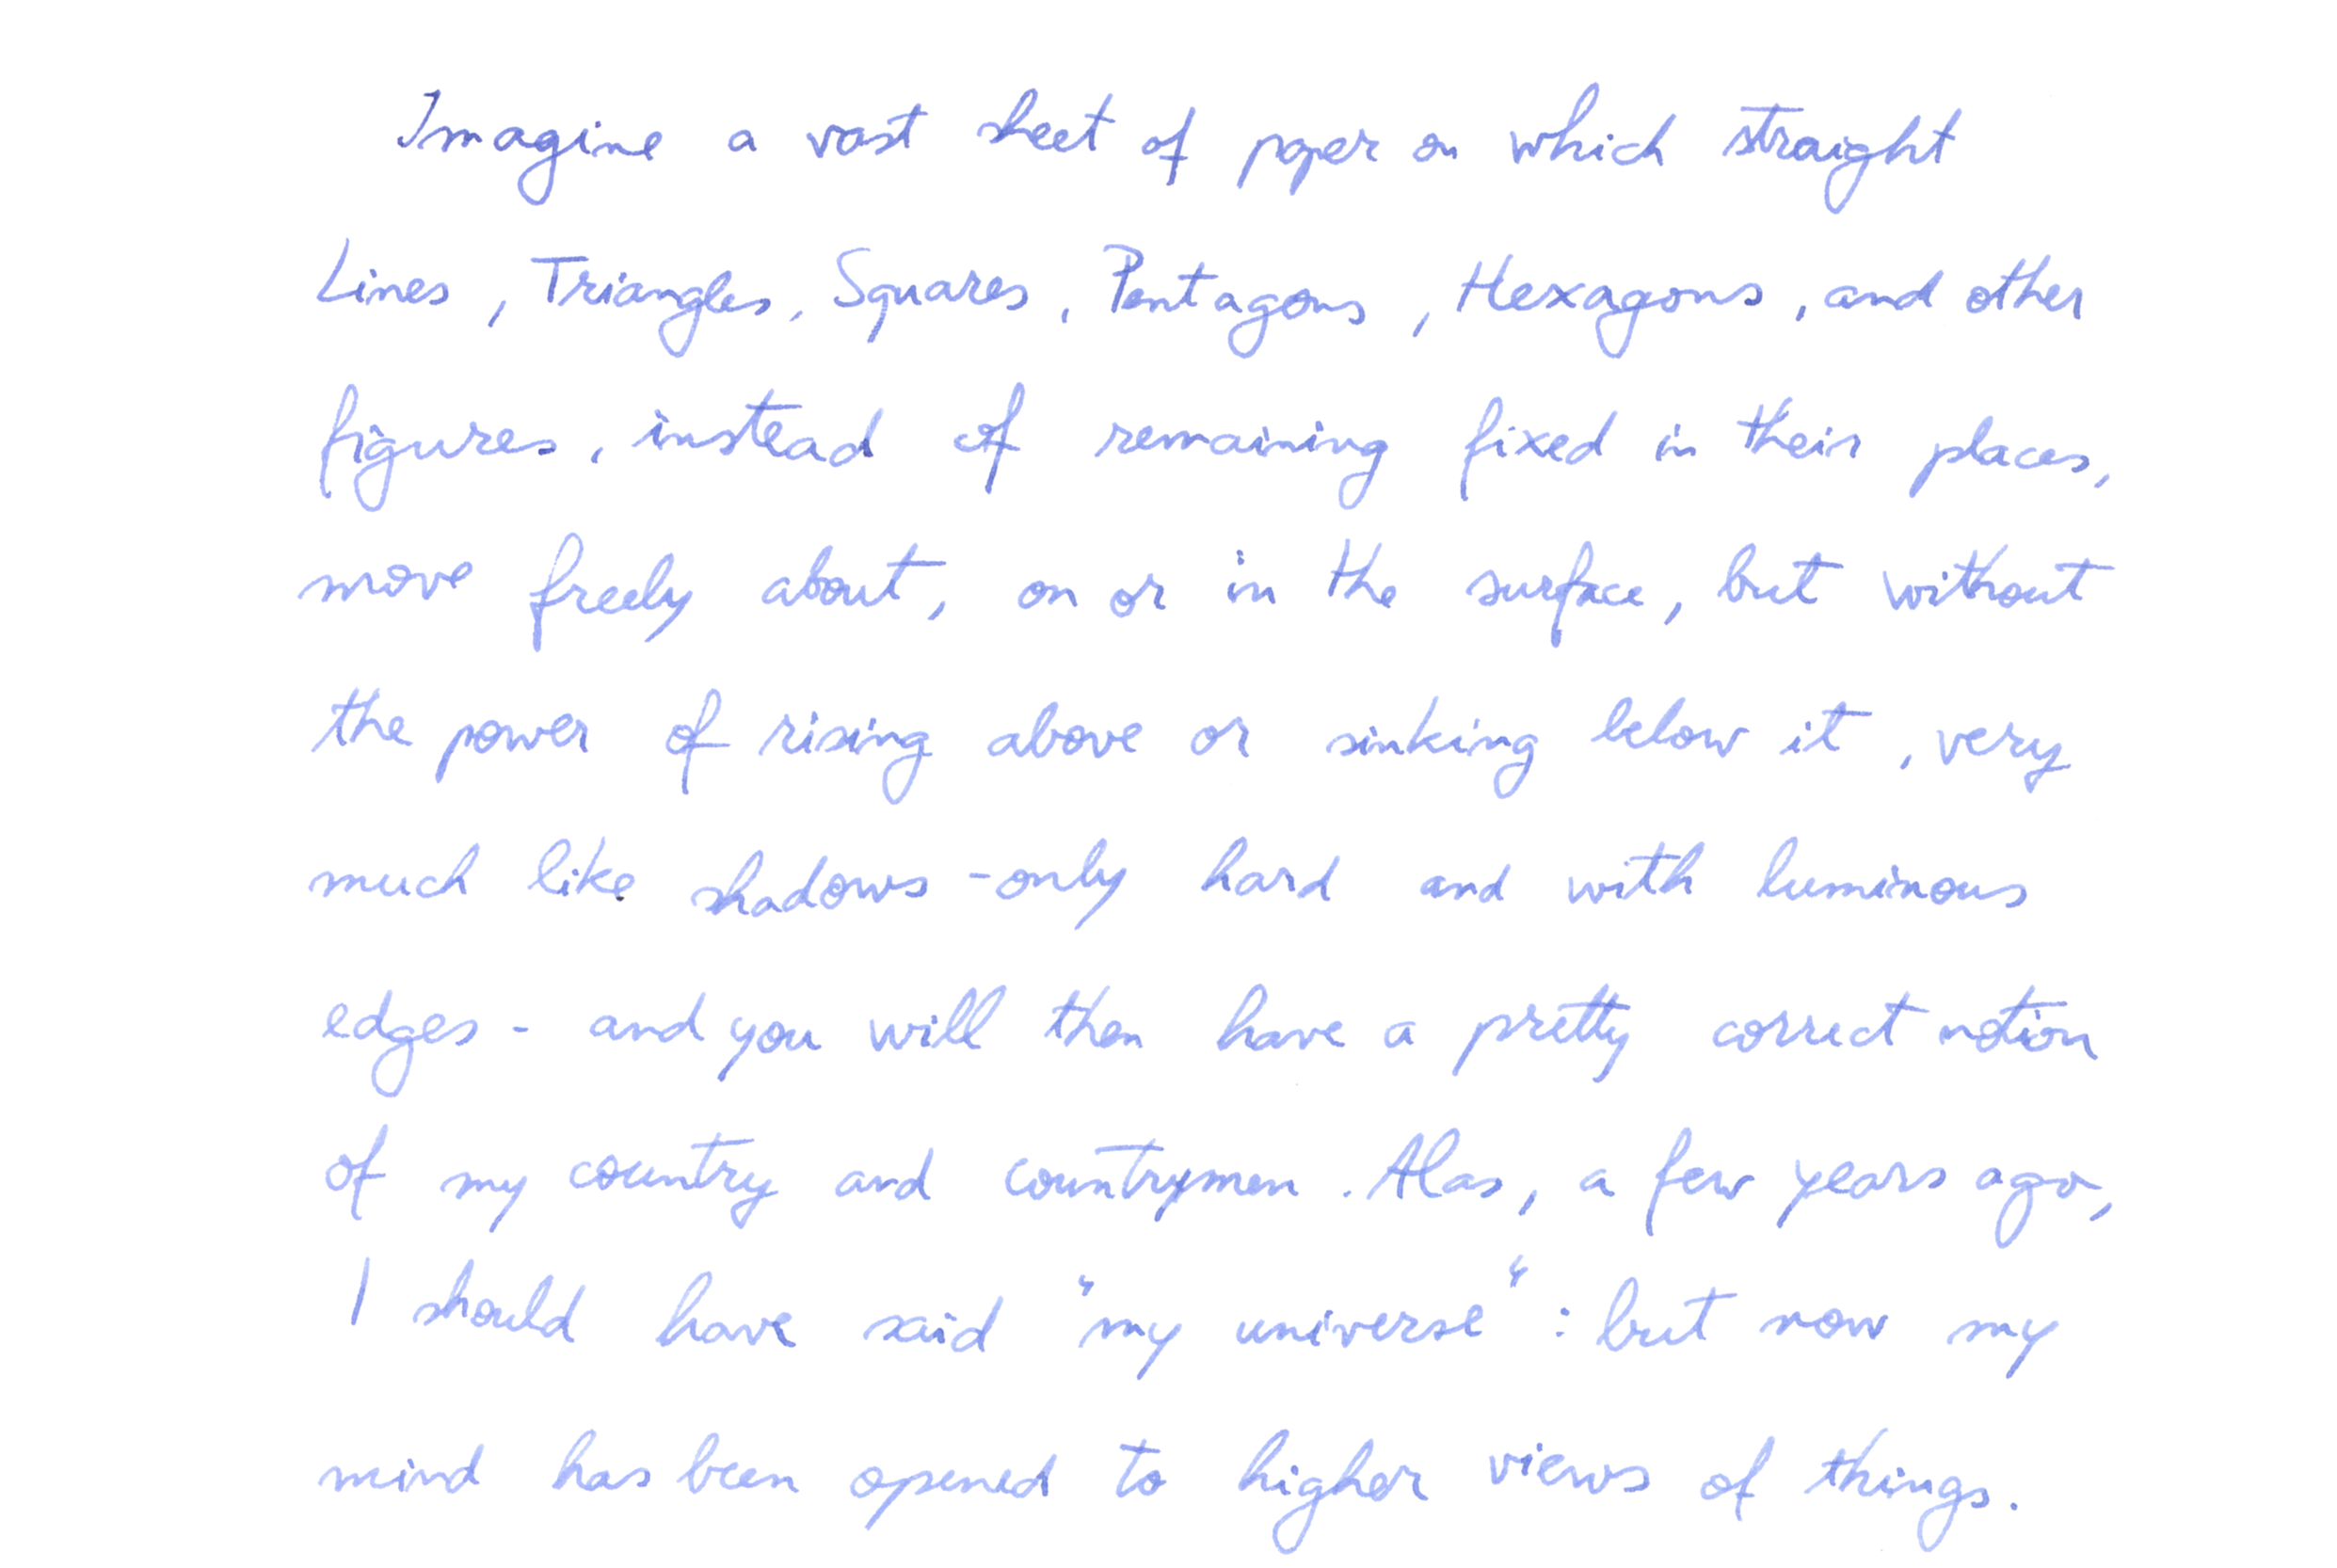 Imagine a vast sheet of paper on which straight
Lines, Triangles, Squares, Pentagons, Hexagons, and other
figures, instead of remaining fixed in their places,
move freely about, on or in the surface, but without
the power of rising above or sinking below it, very
much like shadows -only hard and with luminous
edges - and you will then have a pretty correct notion
of my country and countrymen. Alas, a few years ago,
I should have said "my universe": but now my
mind has been opened to higher views of things.